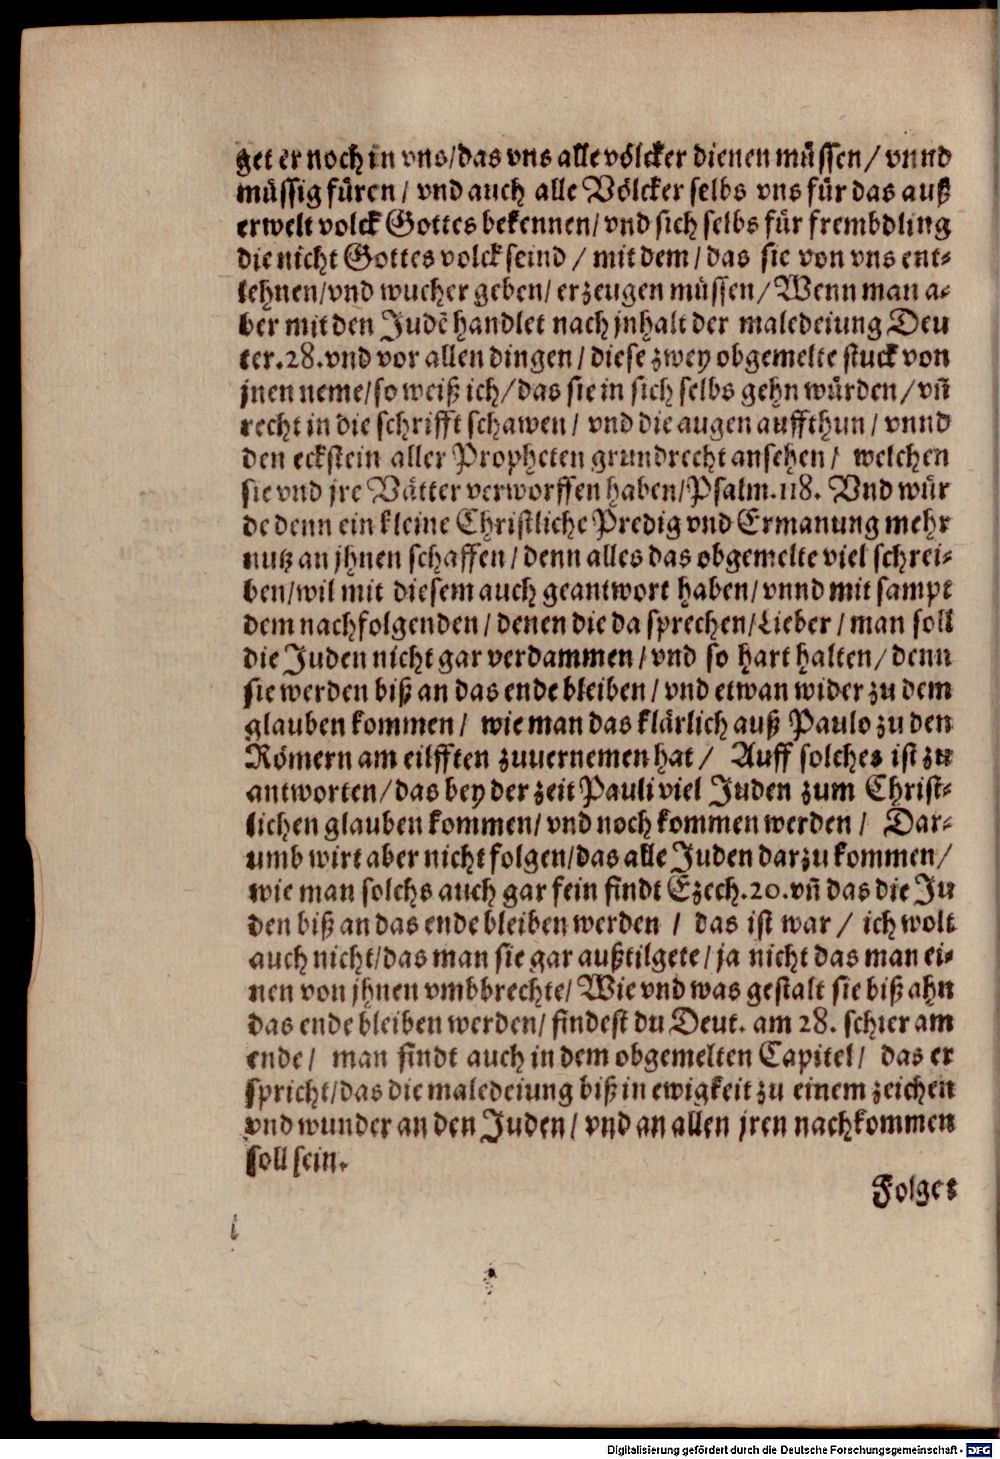 get er noch in vns/das vns alle völcker dienen müssen/ vnnd
müssig füren/ vnd auch alle Völcker selbs vns für das auß
erwelt volck Gottes bekennen/ vnd sich selbs für frembdling
die nicht Gottes volck seind / mit dem/ das sie von vns ent-
lehnen/vnd wucher geben/ erzeugen müssen/ Wenn man a-
ber mit den Judẽ handlet nach jnhalt der maledeiung Deu
ter.28.vnd vor allen dingen/ diese zwey obgemelte stuck von
jnen neme/so weiß ich/das sie in sich selbs gehn würden/ vñ
recht in die schrifft schawen/ vnd die augen auffthun/ vnnd
den eckstein aller Propheten grundrecht ansehen/ welchen
sie vnd jre Vätter verworffen haben/Psalm.118. Vnd wür
de denn ein kleine Christliche Predig vnd Ermanung mehr
nutz an jhnen schaffen/ denn alles das obgemelte viel schrei-
ben/wil mit diesem auch geantwort haben/ vnnd mit sampt
dem nachfolgenden/ denen die da sprechen/Lieber/ man soll
die Juden nicht gar verdammen/ vnd so hart halten/ denn
sie werden biß an das ende bleiben/ vnd etwan wider zu dem
glauben kommen/ wie man das klärlich auß Paulo zu den
Römern am eilfften zuuernemen hat/ Auff solches ist zu
antworten/das bey der zeit Pauli viel Juden zum Christ-
lichen glauben kommen/ vnd noch kommen werden/ Dar-
umb wirt aber nicht folgen/das alle Juden darzu kommen/
wie man solchs auch gar fein findt Ezech.20.vñ das die Ju
den biß an das ende bleiben werden / das ist war / ich wolt
auch nicht/das man sie gar außtilgete/ ja nicht das man ei-
nen von jhnen vmbbrechte/ Wie vnd was gestalt sie biß ahn
das ende bleiben werden/ findest du Deut. am 28. schier am
ende/ man findt auch in dem obgemelten Capitel/ das er
spricht/das die maledeiung biß in ewigkeit zu einem zeichen
vnd wunder an den Juden/ vnd an allen jren nachkommen
soll sein.
Folget
Digitalisierung gefördert durch die Deutsche Forschungsgemeinschaft - DFG